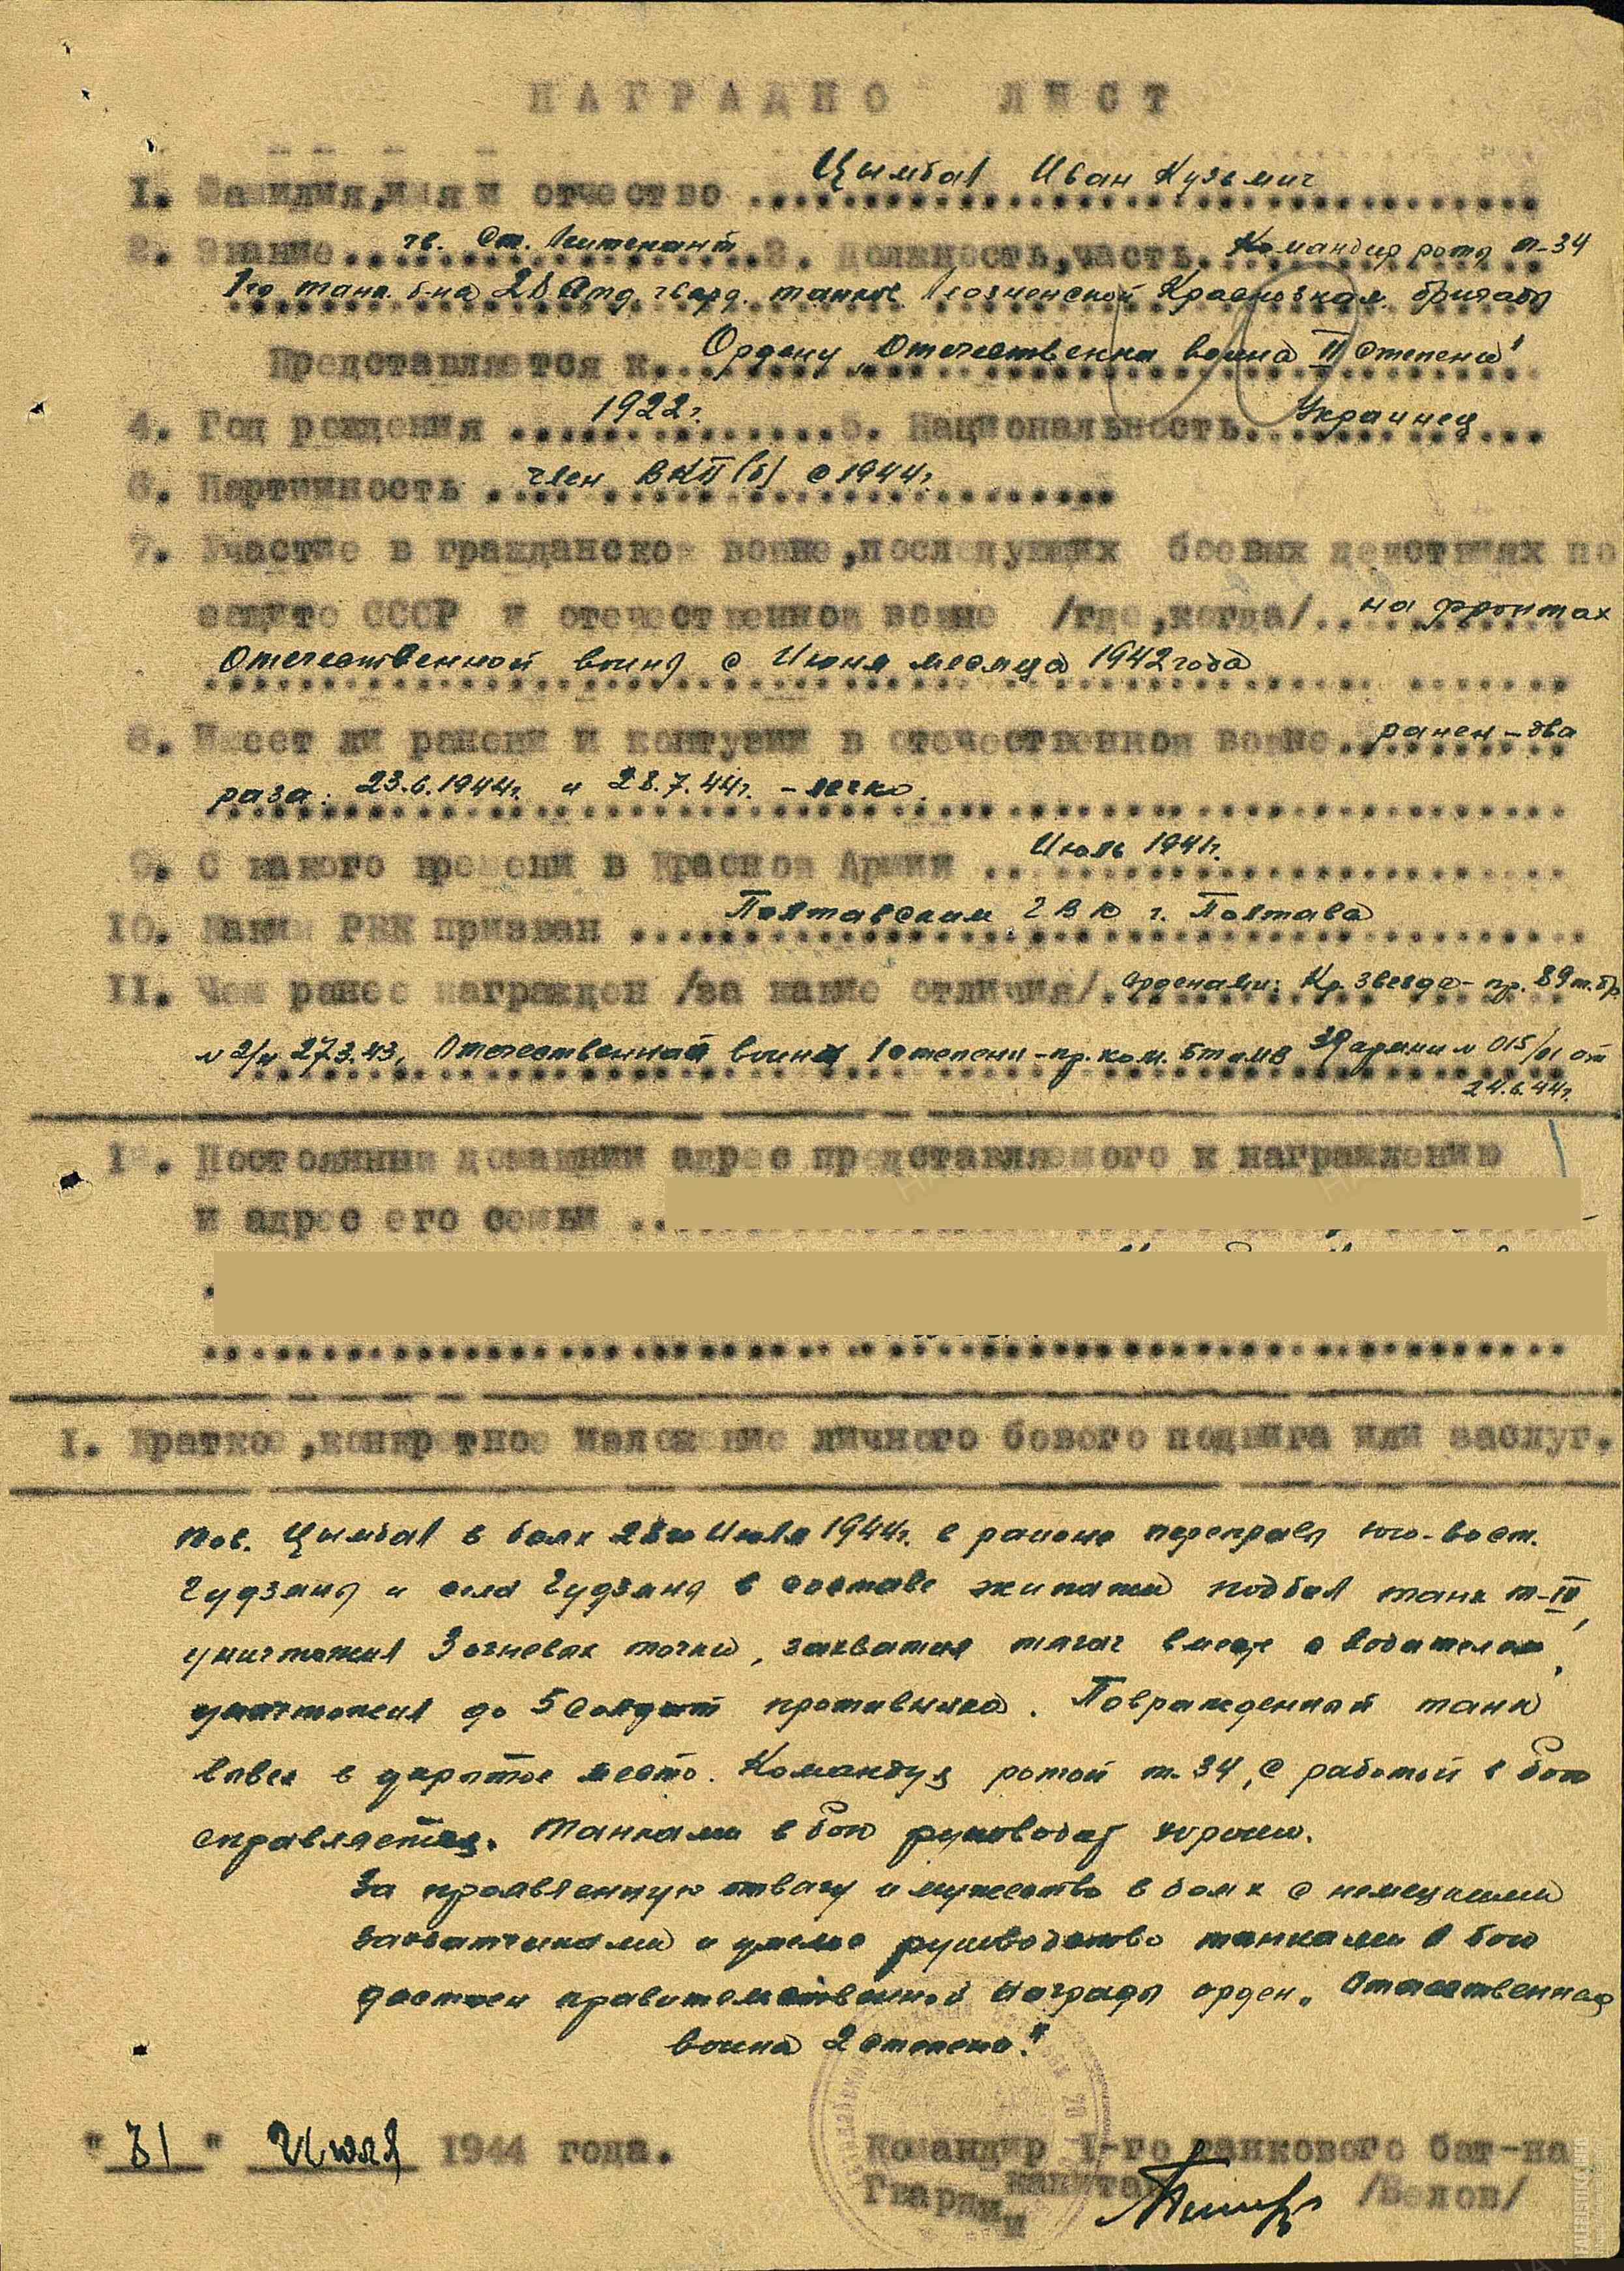 НАГРАДНО ЛИСТ
1. Фамилия, имя и отчество Цымбал Иван Кузьмич
2. Звание гв. Ст. Лейтенант 3. Должность, часть Командир роты т-34
1го танк. б-на 28 Отд. гвард. танков. Лиозненской Краснознам. бригады
Представляется к Ордену „Отечественная война II степени"
4. Год рождения 1922г. 5. Национальность Украинец
6. Партийность член ВКП(б) с 1944г.
7. Участие в гражданской войне, последующих боевых действиях по
защите СССР и отечественной войне /где, когда/ на фронтах
Отечественной войны с Июня месяца 1942 года
8. Имеет ли ранени и контузии в отечественной войне ранен - два
раза: 23.6.1944г. и 28.7.44г. - легко.
9. С какого времени в Красной Армии Июль 1941г.
10. Каким РВК призван Полтавским ГВК г. Полтава
11. Чем ранее награжден /за какие отличия/ орденами: Кр. Звезда - пр. 89 т.бр
№ 2/н 27.3.43, Отечественная война 1 степени - пр. ком. БТ и МВ 39 армии № 015/н от
24.6.44г.
1 . Постоянный домашний адрес представляемого к награждению
и адрес его семьи
I. Кратко, конкретное изложение личного бового подвига или заслуг.
Тов. Цымбал в боях 28го Июля 1944г. в районе переправы юго-вост.
Гудзяны и села Гудзяны в составе экипажа подбил танк т-IV,
уничтожил 3 огневых точки, захватил тягач вместе с водителем,
уничтожил до 5 солдат противника. Поврежденный танк
вывел в укрытое место. Командуя ротой т-34, с работой в бою
справляется. Танками в бою руководит хорошо.
За проявленную отвагу и мужество в боях с немецкими
захватчиками и умелое руководство танками в бою
достоен правительственной награды орден „Отечественная
война 2 степени".
" 31 " Июля 1944 года.
Командир 1-го танкового бат-на
Гвардии капитан /Белов/